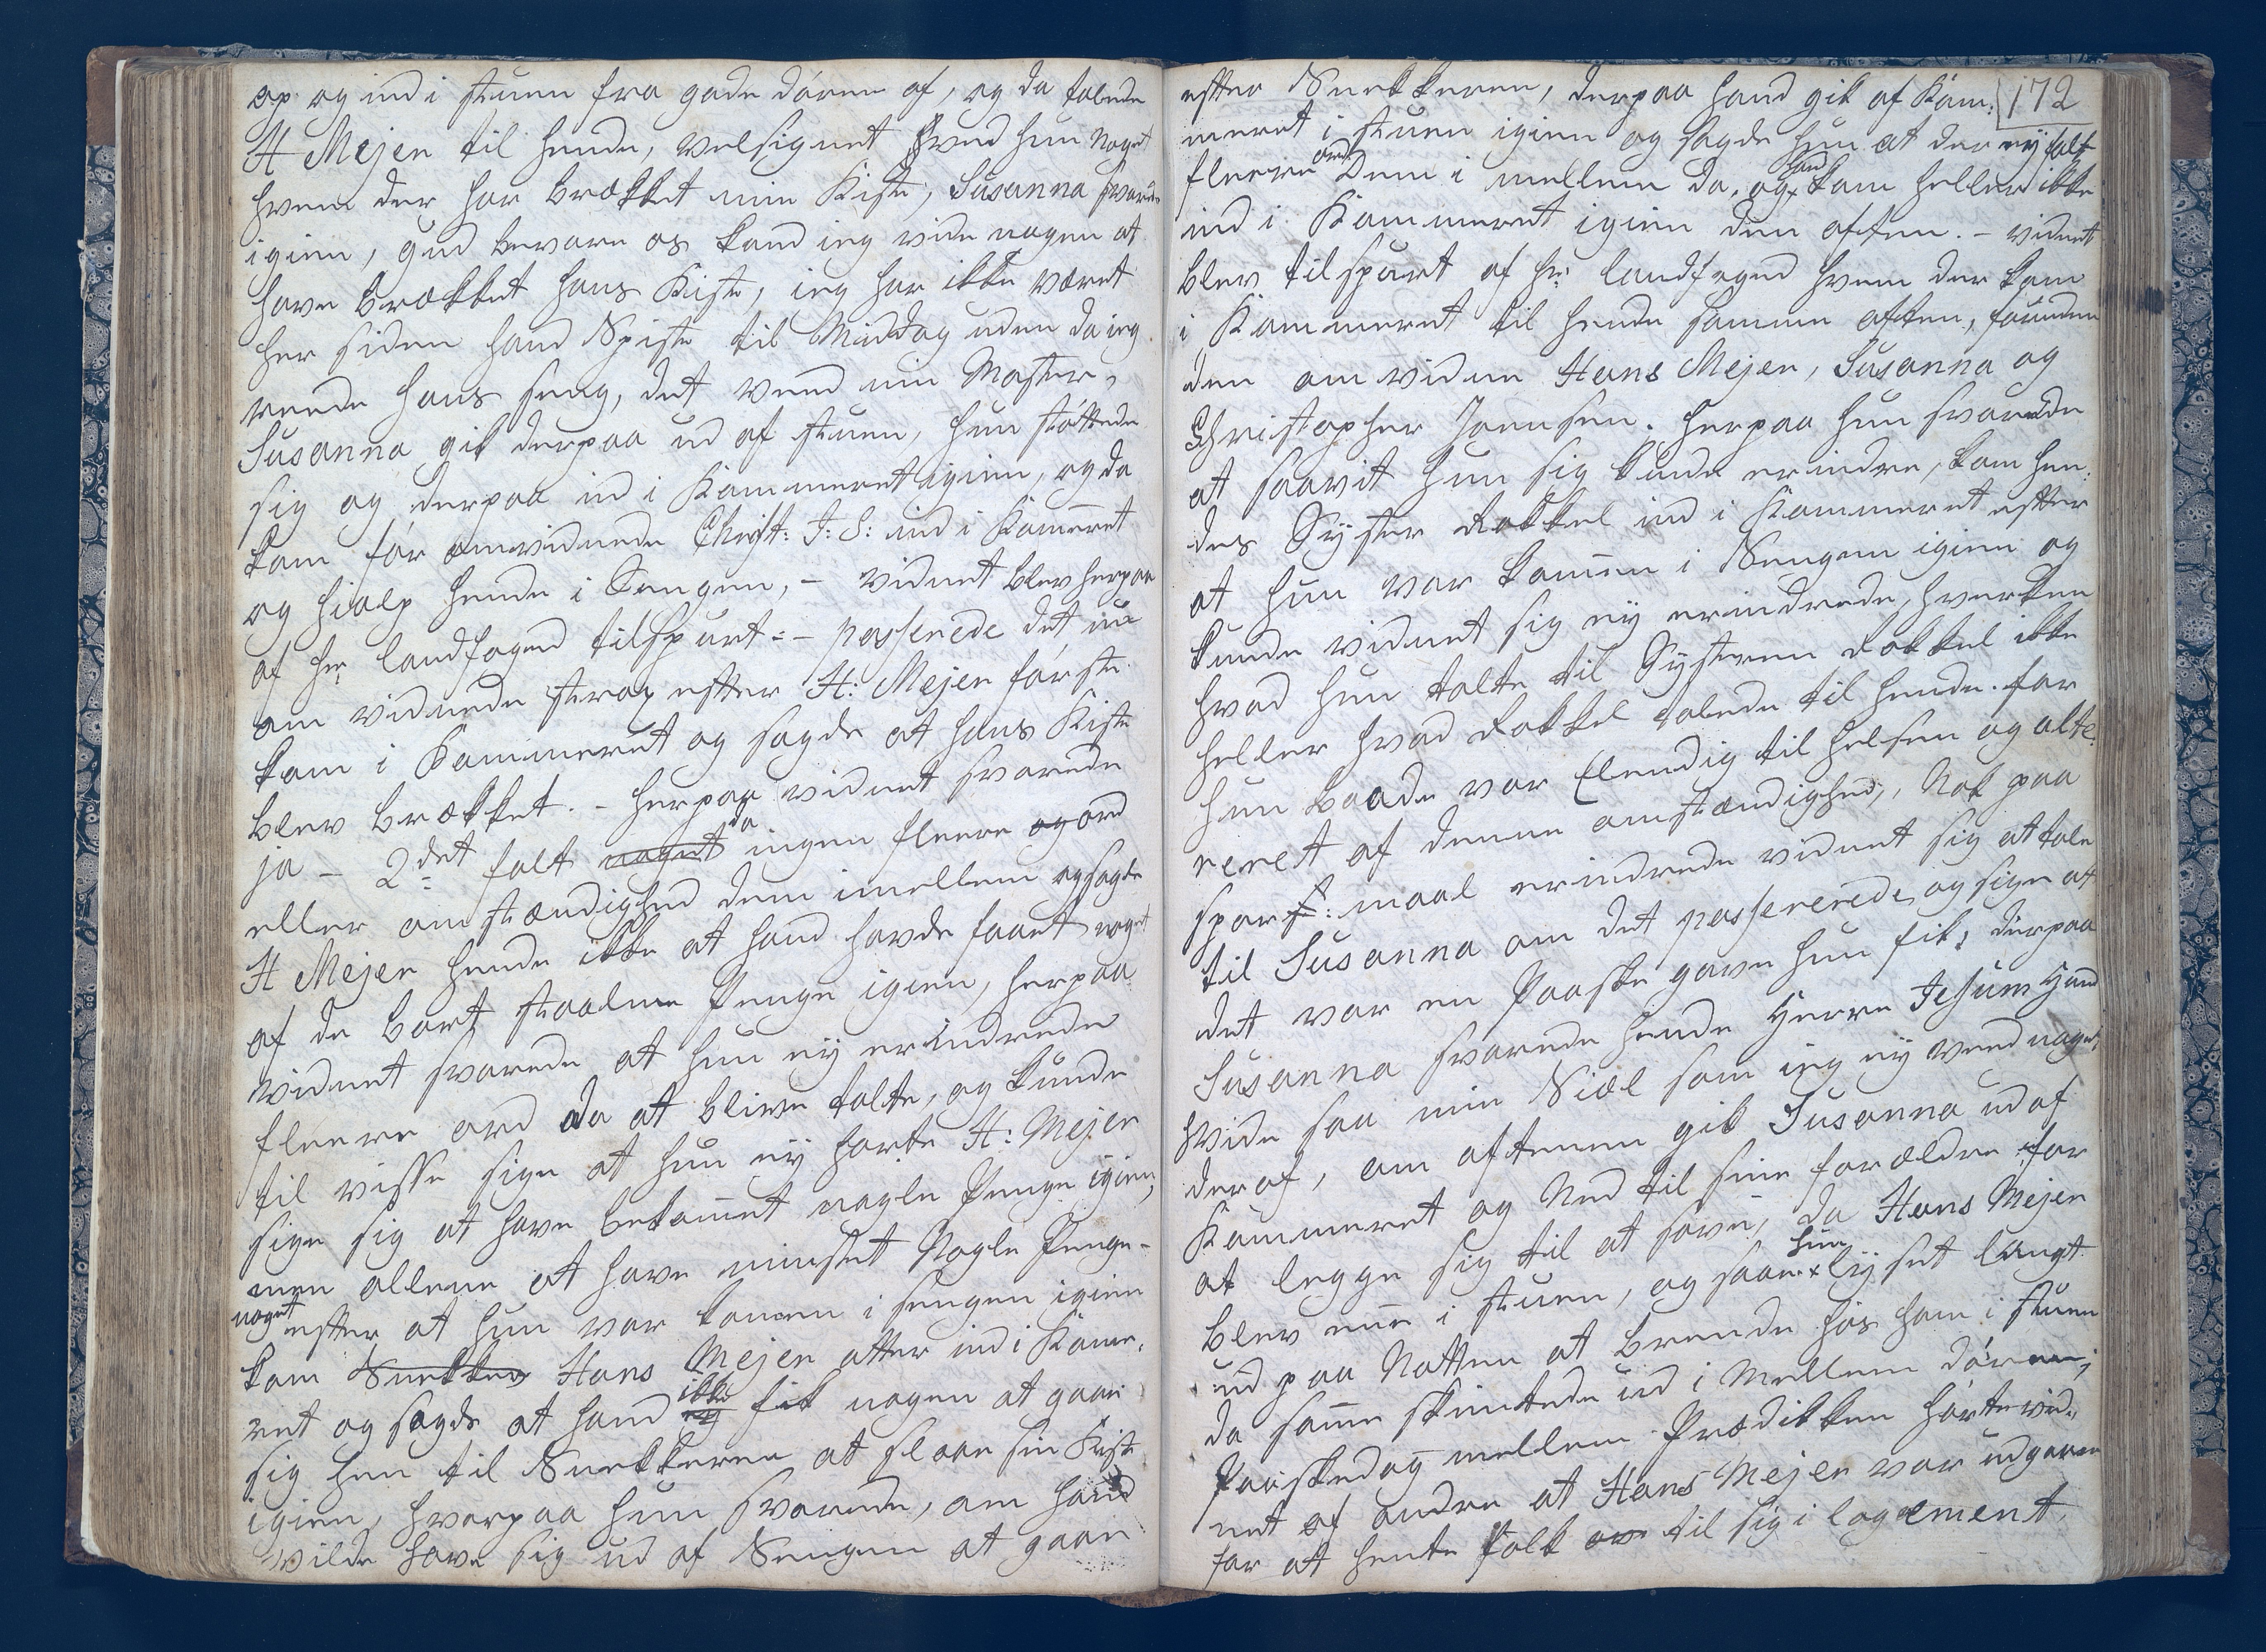 op og ind i stuen fra gade dören af, og da talede
H Mejer til hende, velsignet hved hun noget
hvem der har brækket min Kiste, Susanna svarede
igien, gud bevare os kand ieg vide nogen at
have brækket hans Kiste, ieg har ikke været
her siden hand Spiste til Middag uden da ieg
reede hans seng, det veed min Moster,
Susanna gik derpaa ud af stuen, hun støttede
sig og derpaa ind i Kammeret igien, og da
kom för omvidnede Christ: J: S: ind i Kam̄eret
og hialp hende i Sengen, - vidnet blev herpaa
af hr landfoged tilspurt = - passerede det nu
om vidnede strax efter H: Mejer förste
kom i Kammeret og sagde at hans Kiste
blev brækket. - herpaa vidnet svarede
ja - 2det falt noget da ingen fleere og ord
eller omstændighed dem imellem og sagde
H Mejer hende ikke at hand havde faaet noget
af de bort staalne Penge igien, herpaa
vidnet svarede at hun ey erindrede
fleere ord da at blive talte, og kunde
til visse sige at hun ey hørte H: Mejer
sige sig at have bekom̄et nogle Penge igien,
men allene at have mistet Nogle Penge -
noget efter at hun var kom̄en i sengen igien
kom Snekker Hans Mejer atter ind i Kam̄e,
ret og sagde at hand ey ikke fik nogen at gaae
sig hen til Snekkeren at slaae sin Kiste
igien, hvorpaa hun svarede, om hand
vilde have sig ud af Sengen at gaae
172
efter Snekkeren, derpaa hand gik af Kam:
meret i stuen igien og sagde hun at der ey falt
fleere ord Dem i mellem da, og hand kom heller ikke
ind i Kammeret igien den aften. - vidnet
blev tilspurt af hr: landfoged hvem der kom
i Kammeret til hende samme aften, foruden
den omvidne Hans Mejer, Susanna og
Christopher Joensen. herpaa hun svarede
at saavit hun sig kunde erindre, kom hen:
des Syster Rakkel ind i Kammeret efter
at hun var kom̄en i Sengen igien og
kunde vidnet sig ey erindrede, hverken
hvad hun talte til Systeren Rakkel ikke
heller hvad Rakkel talede til hende. for
hun baade var Elendig til helsen og alte:
reret af denne omstændighed,, Nok paa
spors: maal erindrede vidnet sig at tale
til Susanna om det passererede, og sige at
det var en Paaske gave hun fik; derpaa
Susanna svarede hende Herre Jesum hand
hvide saa min Siæl som ieg ey veed noget,
deraf, om aftenen gik Susanna ud af
Kammeret og Ned til sine forældre for
at legge sig til at sove, da Hans Mejer
blev ene i stuen, og saae hun lyset langt
ud paa Natten at brende hos ham i stuen
da sam̄e skintede ud i Mellem dören,
Paaskedag mellem Prædikken hörte vid,
net af andre at Hans Mejer var udgaaen
for at hente folk til sig i logement.